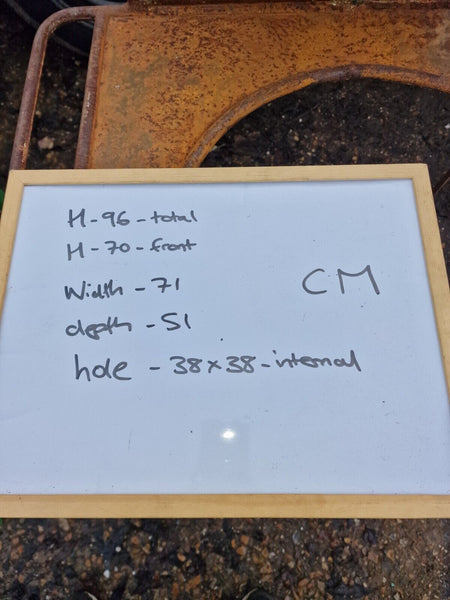 H-96-total
H-70-front
Width - 71
CM
depth - 51
hole - 38x38-internal